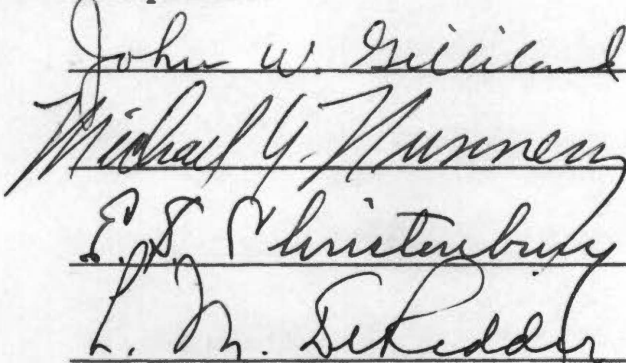 John W. Gilliland
Michael Y. Nunnery
E. S. Christenbury
L. M. DeRidder